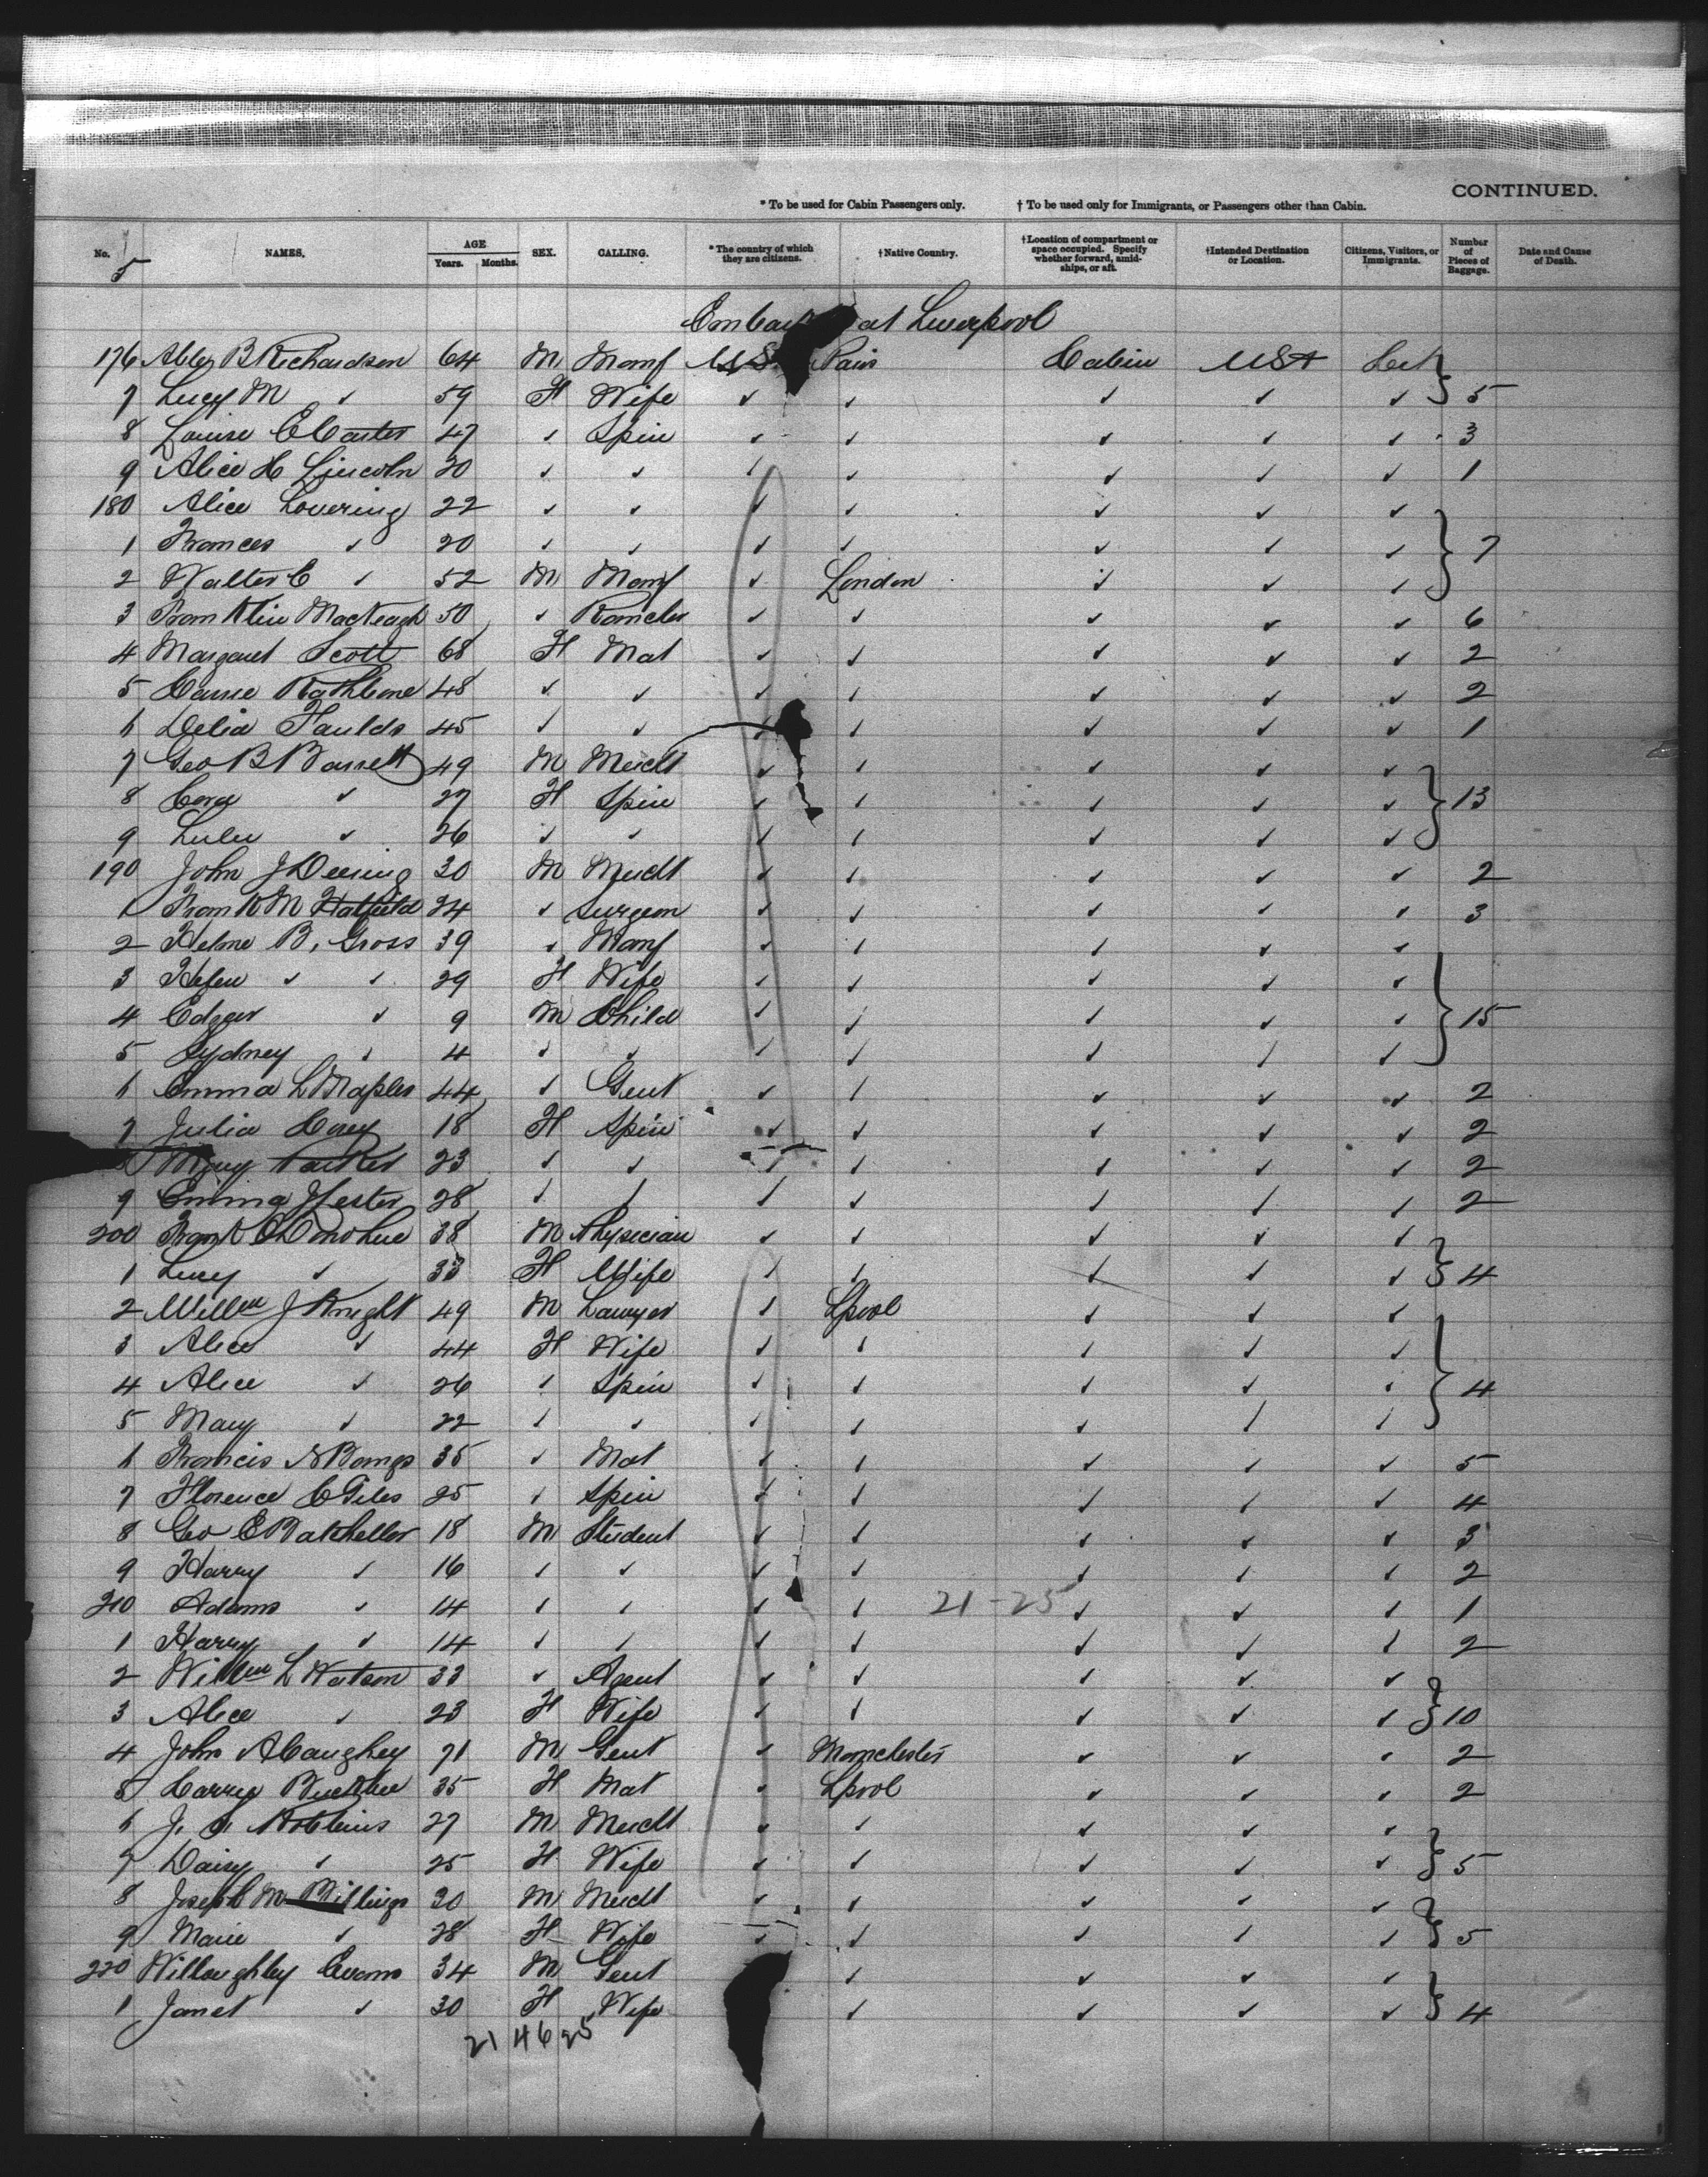 CONTINUED.
* To be used for Cabin Passengers only. † To be used only for Immigrants, or Passengers other than Cabin.
No. NAMES. AGE Years. Months. SEX. CALLING. * The country of which they are citizens. † Native Country. † Location of compartment or space occupied. Specify whether forward, amidships, or aft. † Intended Destination or Location. Citizens, Visitors, or Immigrants. Number of Pieces of Baggage. Date and Cause of Death.
5
at Liverpool
176 B Richardson 64 M Manf U.S. Paris Cabin USA
7 Lucy M ✓ 59 F Wife ✓ ✓ ✓ ✓ ✓ 5
8 Louise C Carter 47 ✓ Spin ✓ ✓ ✓ ✓ ✓ 3
9 Alice H Lincoln 20 ✓ ✓ ✓ ✓ ✓ ✓ ✓ 1
180 Alice Lovering 22 ✓ ✓ ✓ ✓ ✓ ✓ ✓
1 Frances ✓ 20 ✓ ✓ ✓ ✓ ✓ ✓ ✓ 7
2 Walter C ✓ 52 M Manf ✓ London ✓ ✓ ✓
3 Franklin 50 ✓ Rancher ✓ ✓ ✓ ✓ ✓ 6
4 Margaret Scott 68 F Mat ✓ ✓ ✓ ✓ ✓ 2
5 Carrie Rathbone 48 ✓ ✓ ✓ ✓ ✓ ✓ ✓ 2
6 Delia Faulds 45 ✓ ✓ ✓ ✓ ✓ ✓ ✓ 1
7 Geo B Barrett 49 M Mercht ✓ ✓ ✓ ✓ ✓
8 Cora ✓ 27 F Spin ✓ ✓ ✓ ✓ ✓ 13
9 Lulu ✓ 26 ✓ ✓ ✓ ✓ ✓ ✓ ✓
190 John J Deering 30 M Mercht ✓ ✓ ✓ ✓ ✓ 2
1 Frank M Hatfield 24 ✓ Surgeon ✓ ✓ ✓ ✓ ✓ 3
2 B. Gross 39 ✓ Manf ✓ ✓ ✓ ✓ ✓
3 Helen ✓ ✓ 29 F Wife ✓ ✓ ✓ ✓ ✓
4 Edgar ✓ 9 M Child ✓ ✓ ✓ ✓ ✓ 15
5 Sydney ✓ 4 ✓ ✓ ✓ ✓ ✓ ✓ ✓
6 Emma L Maples 44 ✓ Gent ✓ ✓ ✓ ✓ ✓ 2
7 Julia 18 F Spin ✓ ✓ ✓ ✓ ✓ 2
Mary Parker 23 ✓ ✓ ✓ ✓ ✓ ✓ ✓ 2
9 Emma J Lester 28 ✓ ✓ ✓ ✓ ✓ ✓ ✓ 2
200 Frank Donohue 38 M Physician ✓ ✓ ✓ ✓ ✓
1 Lucy ✓ 33 F Wife ✓ ✓ ✓ ✓ ✓ 4
2 Willm J Knight 49 M Lawyer ✓ Lpool ✓ ✓ ✓
3 Alice ✓ 44 F Wife ✓ ✓ ✓ ✓ ✓
4 Alice ✓ 26 ✓ Spin ✓ ✓ ✓ ✓ ✓ 4
5 Mary ✓ 22 ✓ ✓ ✓ ✓ ✓ ✓ ✓
6 Francis N Bangs 35 ✓ Mat ✓ ✓ ✓ ✓ ✓ 5
7 Florence C Giles 25 ✓ Spin ✓ ✓ ✓ ✓ ✓ 4
8 Geo E Batcheller 18 M Student ✓ ✓ ✓ ✓ ✓ 3
9 Harry ✓ 16 ✓ ✓ ✓ ✓ ✓ ✓ ✓ 2
210 Adams ✓ 14 ✓ ✓ ✓ ✓ 21-25 ✓ ✓ ✓ 1
1 Harry ✓ 14 ✓ ✓ ✓ ✓ ✓ ✓ ✓ 2
2 Willm L Watson 33 ✓ Agent ✓ ✓ ✓ ✓ ✓
3 Alice ✓ 23 F Wife ✓ ✓ ✓ ✓ ✓ 10
4 John A Caughey 71 M Gent ✓ Manchester ✓ ✓ ✓ 2
5 Carrie Bucklee 35 F Mat ✓ Lpool ✓ ✓ ✓ 2
6 J. S. Robbins 27 M Mercht ✓ ✓ ✓ ✓ ✓
7 Daisy ✓ 25 F Wife ✓ ✓ ✓ ✓ ✓ 5
8 Joseph M Billings 30 M Mercht ✓ ✓ ✓ ✓ ✓
9 Marie ✓ 28 F Wife ✓ ✓ ✓ ✓ ✓ 5
220 Willoughby Evans 34 M Gent ✓ ✓ ✓ ✓
1 Janet ✓ 30 F Wife ✓ ✓ ✓ ✓ 4
21 46 25